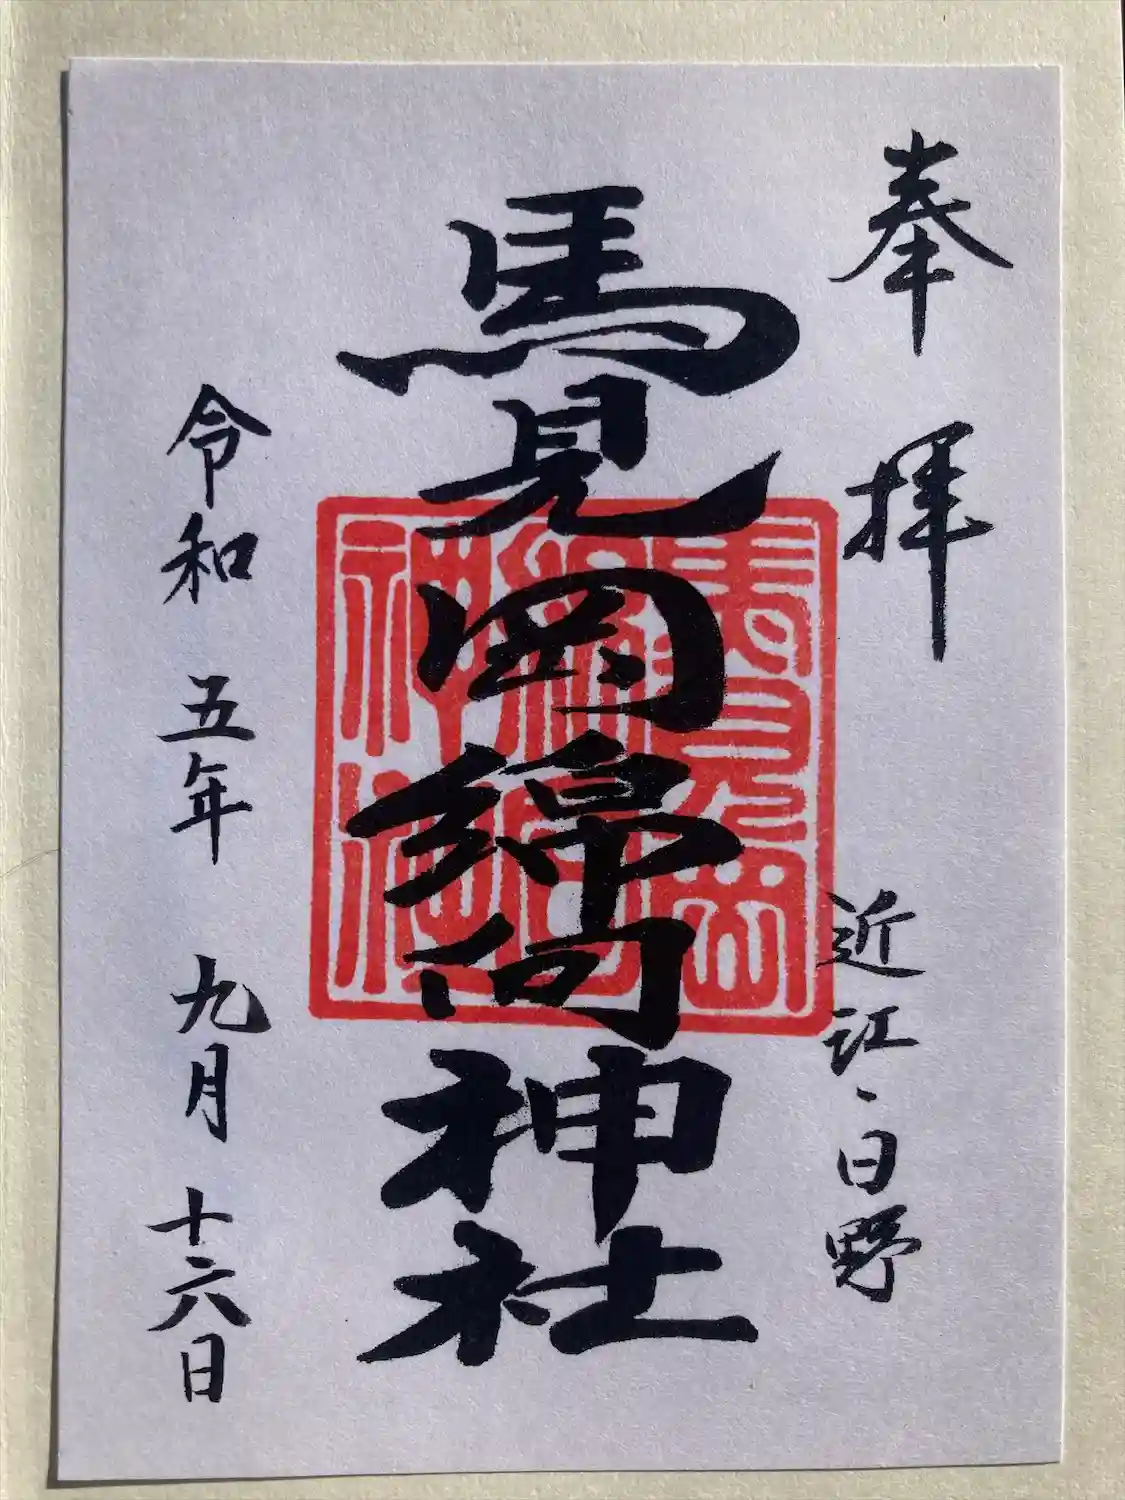 奉拝
近江・日野
馬見岡綿向神社
馬見岡綿向神社
令和五年九月十六日